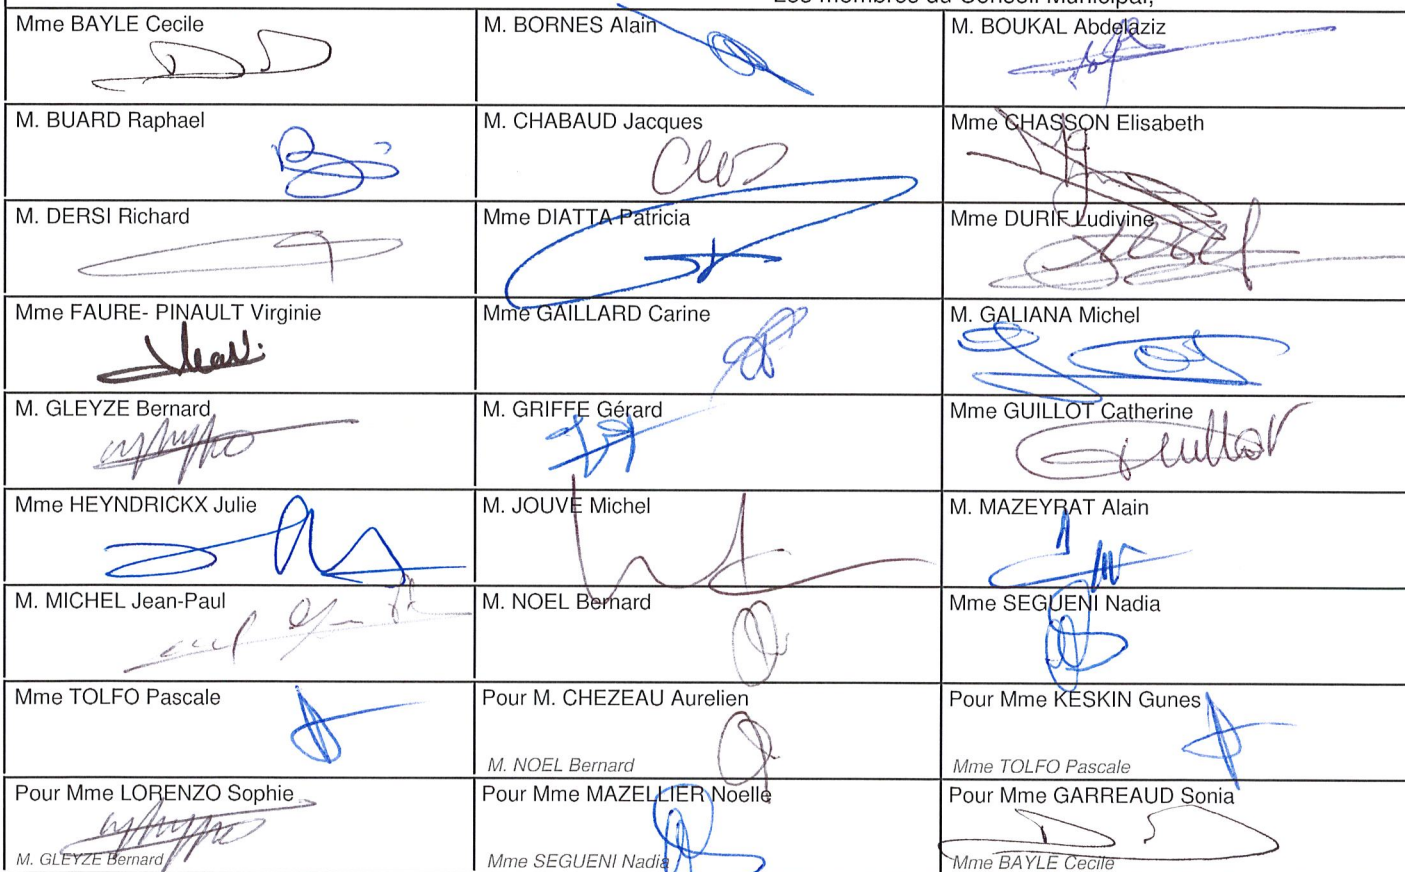 Les membres du Conseil Municipal,
Mme BAYLE Cecile
M. BORNES Alain
M. BOUKAL Abdelaziz
M. BUARD Raphael
M. CHABAUD Jacques
Mme CHASSON Elisabeth
M. DERSI Richard
Mme DIATTA Patricia
Mme DURIF Ludivine
Mme FAURE- PINAULT Virginie
Mme GAILLARD Carine
M. GALIANA Michel
M. GLEYZE Bernard
M. GRIFFE Gérard
Mme GUILLOT Catherine
Guillot
Mme HEYNDRICKX Julie
M. JOUVE Michel
M. MAZEYRAT Alain
M. MICHEL Jean-Paul
M. NOEL Bernard
Mme SEGUENI Nadia
Mme TOLFO Pascale
Pour M. CHEZEAU Aurelien
M. NOEL Bernard
Pour Mme KESKIN Gunes
Mme TOLFO Pascale
Pour Mme LORENZO Sophie
M. GLEYZE Bernard
Pour Mme MAZELLIER Noelle
Mme SEGUENI Nadia
Pour Mme GARREAUD Sonia
Mme BAYLE Cecile